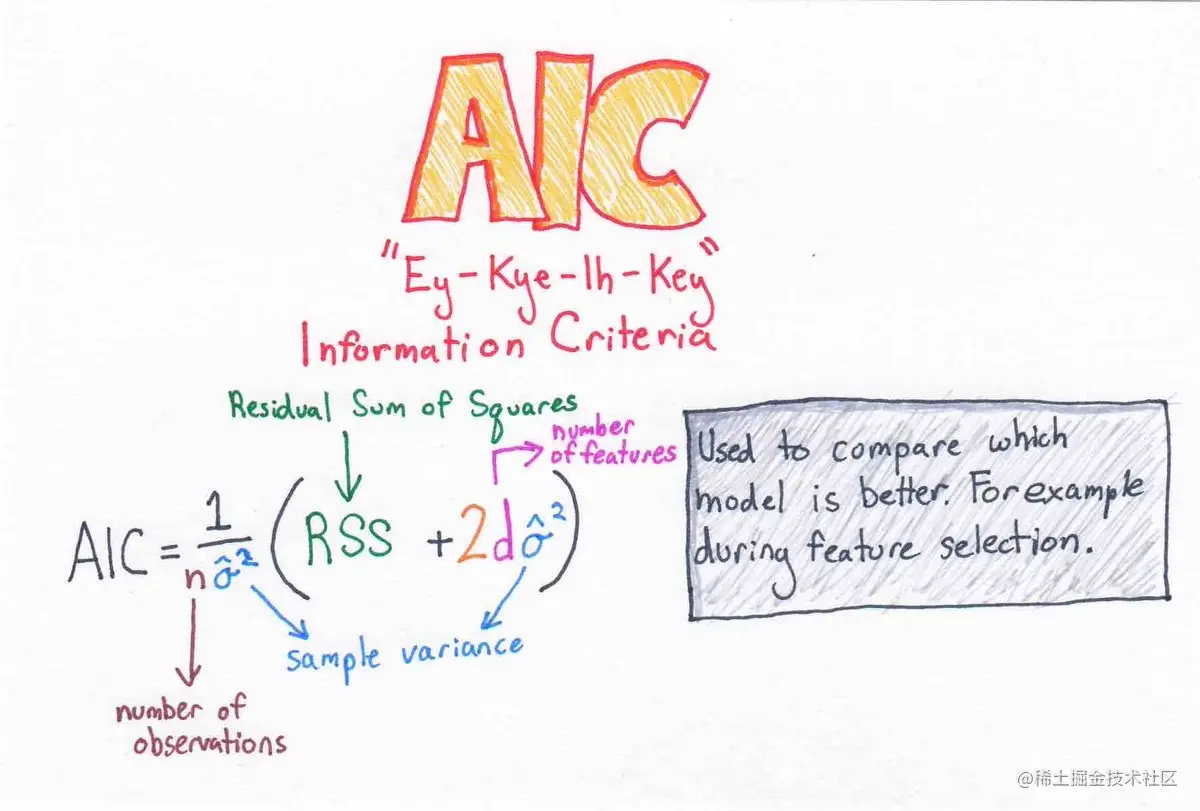 AIC
"Ey-Kye-Ih-Key"
Information Criteria
Residual Sum of Squares
number
of features
AIC = 1/nσ̂² (RSS + 2dσ̂²)
sample variance
number of
observations
Used to compare which
model is better. For example
during feature selection.
@稀土掘金技术社区